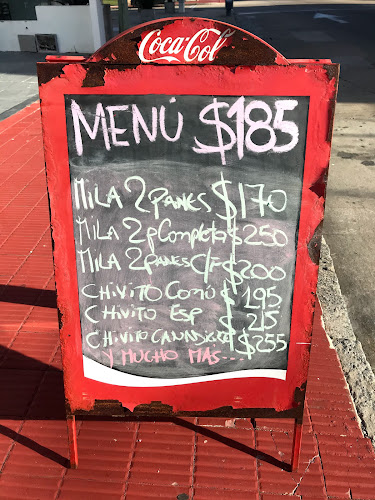 Coca-Cola
MENÚ $185
MILA 2 PANES $170
MILA 2 p Completa $250
MILA 2 PANES C/F $200
CHIVITO COMÚ $195
CHIVITO ESP $215
CHIVITO CANADIENSE $255
Y MUCHO MAS...